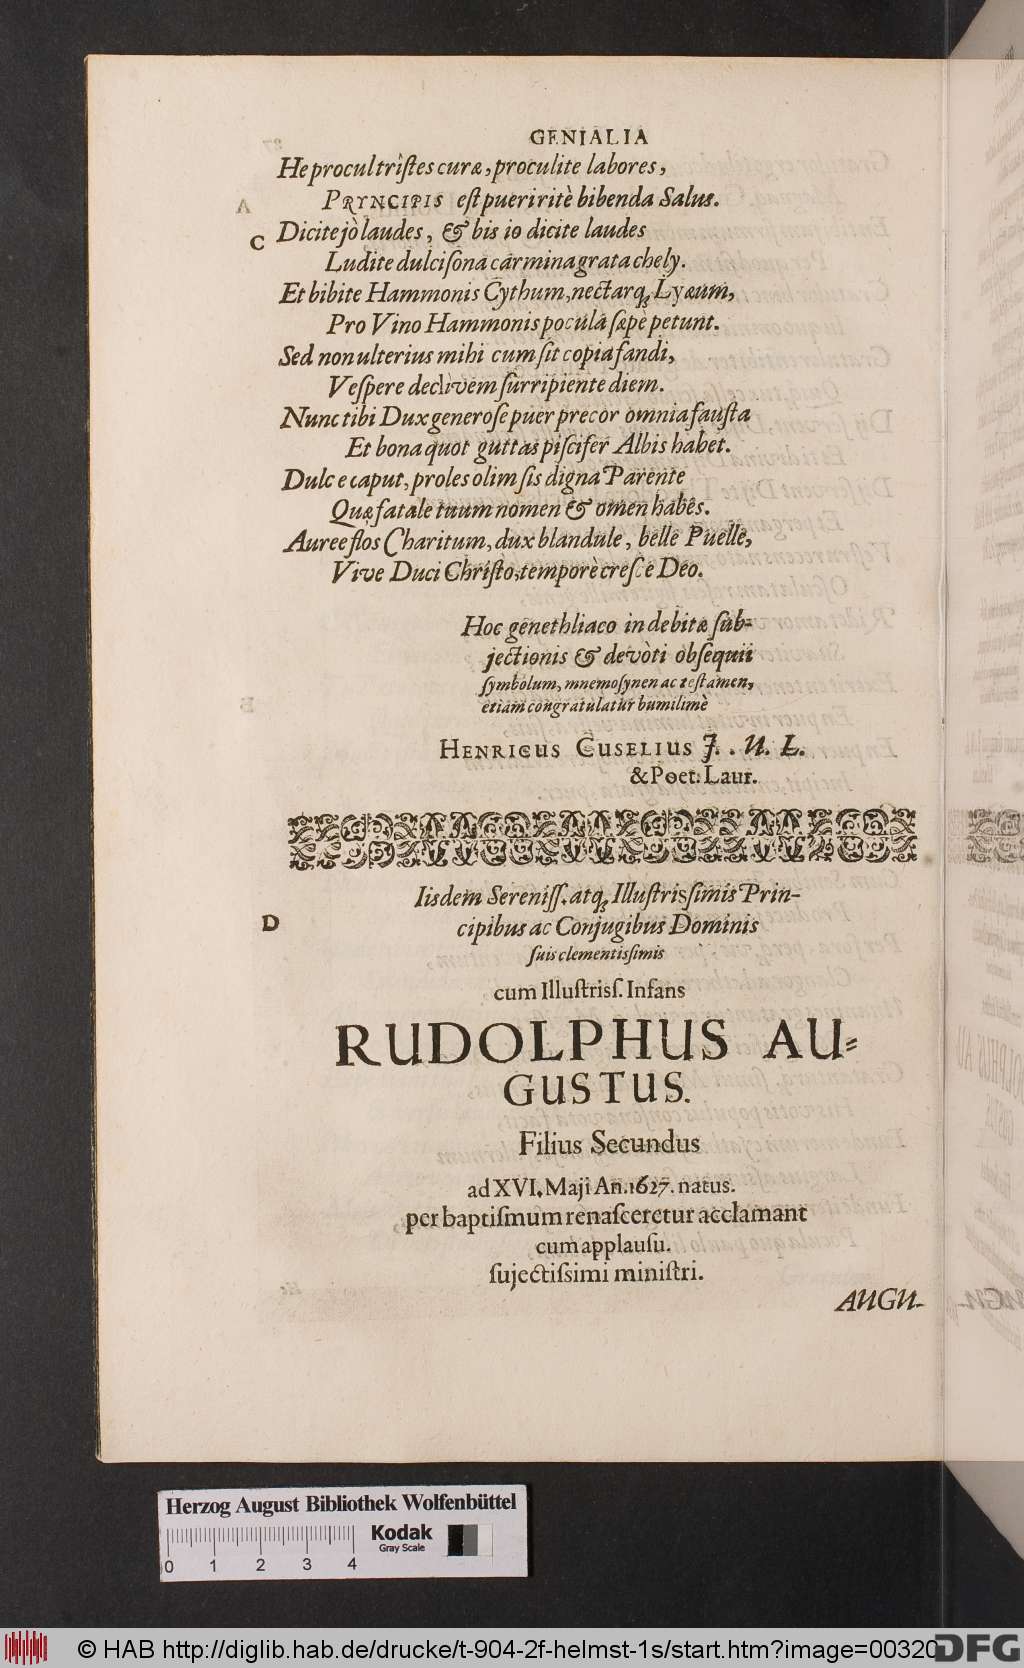 GENIALIA
He procul trìstes curæ, procul ite labores,
PRYNCIPIS est pueri ritè bibenda Salus.
C Dicite jò laudes, & bis io dicite laudes
Ludite dulcisona carmina grata chely.
Et bibite Hammonis Cythum, nectarq; Lyæum,
Pro Vino Hammonis pocula sæpe petunt.
Sed non ulterius mihi cum sit copia fandi,
Vespere declivem surripiente diem.
Nunc tibi Dux generose puer precor omnia fausta
Et bona quot guttas piscifer Albis habet.
Dulce caput, proles olim sis digna Parente
Quæ fatale tuum nomen & omen habês.
Auree flos Charitum, dux blandule, belle Puelle,
Vive Duci Christo, temporè cresce Deo.
Hoc genethliaco in debitæ sub-
jectionis & devòti obsequii
symbolum, mnemosynen ac testamen,
etiam congratulatur humilimè
HENRICUS CUSELIUS J. . U. L.
& Poet. Laur.
D Iisdem Sereniss. atq; Illustrissimis Prin-
cipibus ac Conjugibus Dominis
suis clementissimis
cum Illustriss. Infans
RUDOLPHUS AU-
GUSTUS.
Filius Secundus
ad XVI. Maji An. 1627. natus.
per baptismum renasceretur acclamant
cum applausu.
sujectissimi ministri.
AUGU-
Herzog August Bibliothek Wolfenbüttel
Kodak
Gray Scale
0 1 2 3 4
© HAB http://diglib.hab.de/drucke/t-904-2f-helmst-1s/start.htm?image=00320
DFG